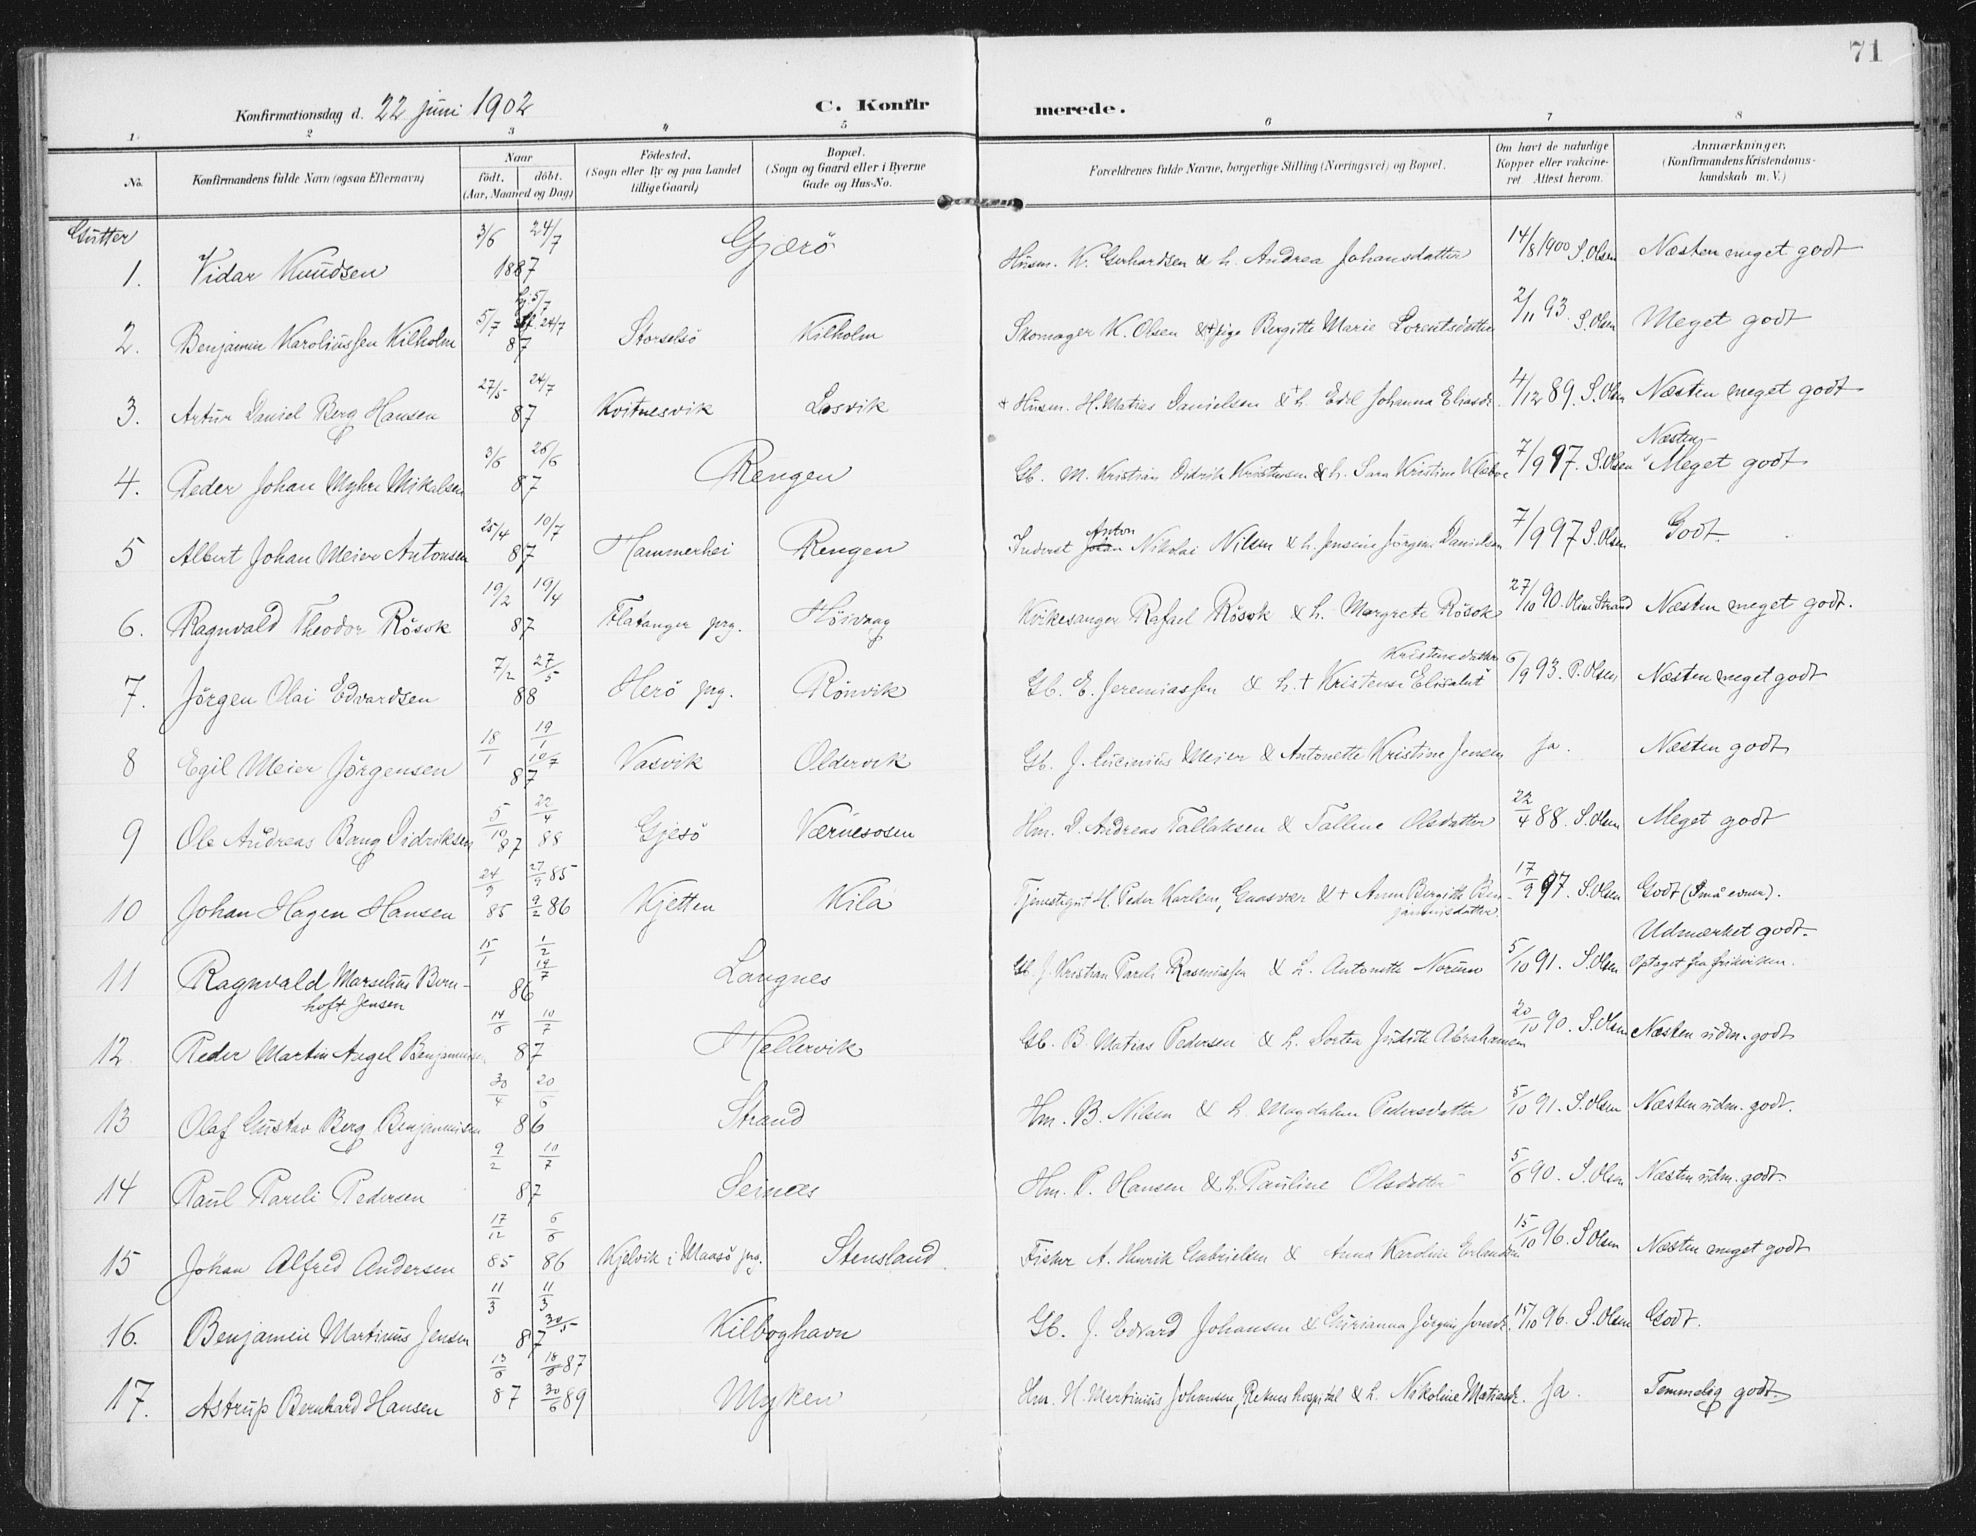 71
Konfirmationsdag d. 22 juni 1902
C. Konfirmerede.
1 2 3 4 5 6 7 8
No.
Konfirmandens fulde Navn (ogsaa Efternavn)
Naar født. døbt. (Aar, Maaned og Dag)
Fødested. (Sogn eller By og paa Landet tillige Gaard)
Bopæl. (Sogn og Gaard eller i Byerne Gade og Hus-No.
Forældrenes fulde Navne, borgerlige Stilling (Næringsvei) og Bopæl.
Om havt de naturlige Kopper eller vakcineret. Attest herom.
Anmærkninger. (Konfirmandens Kristendomskundskab m. V.)
Gutter
1. Vidar Knudsen 3/6 24/7 1887 Gjærö Husm. K. Gerhardsen & h. Andrea Johansdatter 14/8 1900 S. Olsen Næsten meget godt
2. Benjamin Karoliussen Kilholm 5/7 24/7 87 Storselsö Kilholm Skomager K. Olsen & pige Bergitte Marie Lorentsdatter 2/11 93. S. Olsen Meget godt
3. Artur Daniel Berg Hansen 27/5 24/7 87 Kvitnesvik Losvik + Husm. H. Matias Danielsen & + h. Johanna Eliasdr. 4/12 89. S. Olsen Næsten meget godt
4. Peder Johan Myhre Mikalsen 3/6 26/6 87 Rengen Gb. M. Kristian Didrik Kristensen & h. Sara Kristine 7/9 97. S. Olsen Næsten Meget godt
5 Albert Johan Meier Antonsen 25/4 10/7 87 Hammerhei Rengen Inderst Anton Nikolai Nilsen & h. Jensine Jörgine Danielsen 7/9 97 S. Olsen Godt.
6. Ragnvald Theodor Rösok 19/2 19/4 87 Flatanger prg. Höivaag Kirkesanger Rafael Rösok & h. Margrete Rösok 27/10 90. Oline Strand Næsten meget godt.
7. Jörgen Olai Edvardsen 7/2 27/5 88 Herö prg. Rönvik Gb. E. Jeremiassen & h. + Kristense Elisabet Kristensdatter 6/9 93. P. Olsen Næsten meget godt
8 Egil Meier Jörgensen 18/1 19/1 10/7 87 Vasvik Oldervik Gb. J. Lucinius Meier & Antonette Kristine Jensen ja. Næsten godt
9 Ole Andreas Bang Didriksen 5/10 87 22/4 88 Gjesö Værnesosen Hm. D. Andreas Tallaksen & Talline Olsdatter 22/4 88. S. Olsen Meget godt
10 Johan Hagen Hansen 24/9 85 27/9 85 9/2 86 Kjetten Kila Tjenestegut H. Peder Karlsen, Gaasvær & + Anne Bergitte Benjaminsdatter 17/9 97. S. Olsen Godt (Små evner).
11 Ragnvald Marselius Bernhoft Jensen 15/1 1/2 19/7 86 Langnes Gb. J. Kristian Pareli Rasmussen & h. Antonette Norum 5/10 91. S. Olsen Udmærket godt. Optaget fra frikirken.
12. Peder Martin Angel Benjaminsen 14/6 10/7 87 Hellervik Gb. B. Matias Pedersen & h. Dortea Judith Abrahamsen 20/10 90. S. Olsen Næsten udm. godt
13 Olaf Gustav Berg Benjaminsen 30/4 20/6 86 Strand Hm. B. Nilsen & h. Magdalene Pedersdatter 5/10 91. S. Olsen Næsten udm. godt.
14 Paul Pareli Pedersen 9/2 10/7 87 Seines Hm. P. Hansen & h. Pauline Olsdatter 5/6 90. S. Olsen Næsten udm. godt.
15 Johan Alfred Andersen 17/12 85 6/6 86 Kjelvik i Maasö prg. Stensland Fisker A. Henrik Gabrielsen & Anna Karoline Erlandsen 15/10 96. S. Olsen Næsten meget godt
16. Benjamin Martinus Jensen 11/3 11/3 30/5 87 Kilboghavn Gb. J. Edvard Johansen & Gurianna Jörgine Jensdr. 15/10 96. S. Olsen Godt.
17. Astrup Bernhard Hansen 13/6 87 18/6 87 30/6 89 Myken Hm. H. Martinius Johansen, Reknes hospital & h. Nikoline Matiasdr. ja. Temmelig godt.